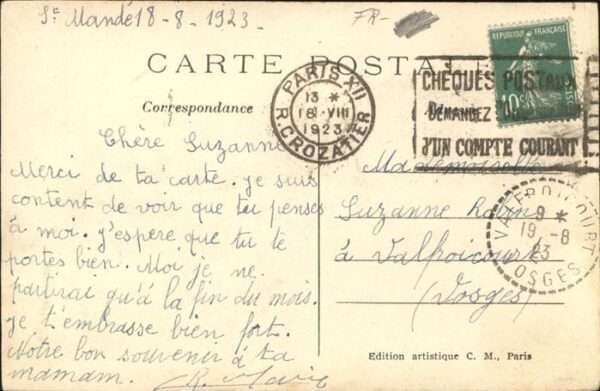 St Mandé 18-8-1923
FR-
CARTE POSTALE
RÉPUBLIQUE FRANÇAISE
10c
PARIS XII
13 *
18 VIII
1923
R. CROZATIER
CHÈQUES POSTAUX
DEMANDEZ
D'UN COMPTE COURANT
Correspondance
Chère Suzanne
Merci de ta carte. je suis
content de voir que tu penses
à moi. j'espère que tu te
portes bien. Moi je ne
partirai qu'à la fin du mois.
je t'embrasse bien fort.
Notre bon souvenir à ta
mamam.
Mademoiselle
Suzanne
à Valfroicourt
(Vosges)
VALFROICOURT
9 *
19 -8
23
VOSGES
Edition artistique C. M., Paris